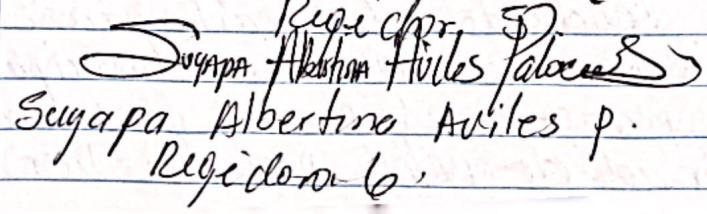 Regidor
Suyapa Albertina Aviles Palacios
Suyapa Albertina Aviles p.
Regidora 6.